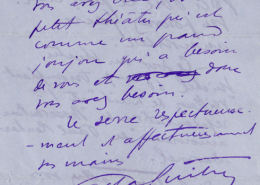 vous avez
petit théâtre qui est
comme un grand
joujou qui a besoin
de vous et dont
vous avez besoin.
Je serre respectueuse-
-ment et affectueusement
vos mains
Guitry